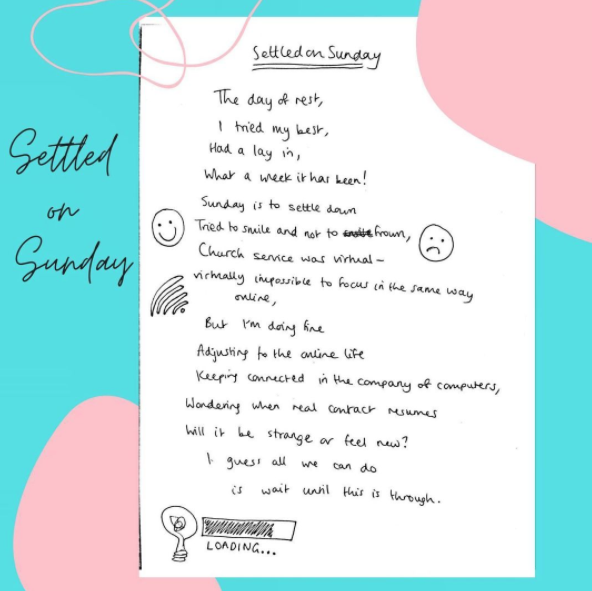 Settled
on
Sunday
Settled on Sunday
The day of rest,
I tried my best,
Had a lay in,
What a week it has been!
Sunday is to settle down
Tried to smile and not to frown,
Church service was virtual –
virtually impossible to focus in the same way
online,
But I'm doing fine
Adjusting to the online life
Keeping connected in the company of computers,
Wondering when real contact resumes
Will it be strange or feel new?
I guess all we can do
is wait until this is through.
LOADING...